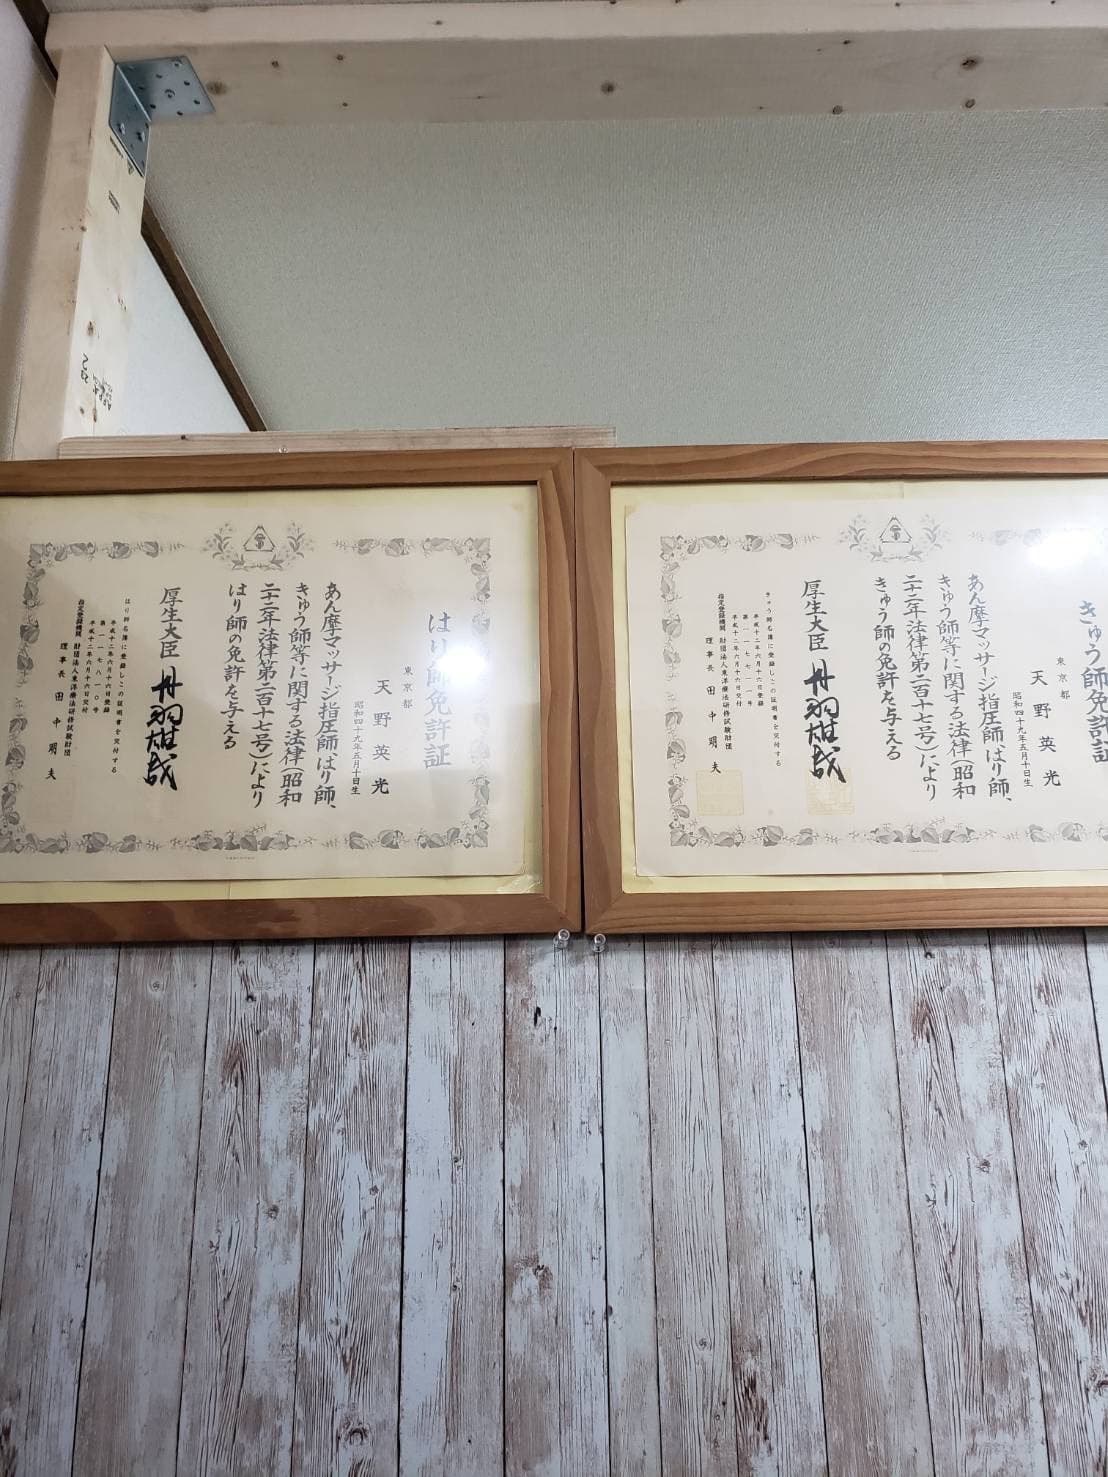 はり師免許証
東京都
天野英光
昭和四十九年五月十日生
あん摩マッサージ指圧師、はり師、
きゅう師等に関する法律（昭和
二十二年法律第二百十七号）により
はり師の免許を与える
厚生大臣 丹羽雄哉
はり師名簿に登録しこの証明書を交付する
平成十二年六月十六日登録
第一一七八一〇号
平成十二年六月十六日交付
指定登録機関 財団法人東洋療法研修試験財団
理事長 田中明夫
きゅう師免許証
東京都
天野英光
昭和四十九年五月十日生
あん摩マッサージ指圧師、はり師、
きゅう師等に関する法律（昭和
二十二年法律第二百十七号）により
きゅう師の免許を与える
厚生大臣 丹羽雄哉
きゅう師名簿に登録しこの証明書を交付する
平成十二年六月十六日登録
平成十二年六月十六日交付
指定登録機関 財団法人東洋療法研修試験財団
理事長 田中明夫